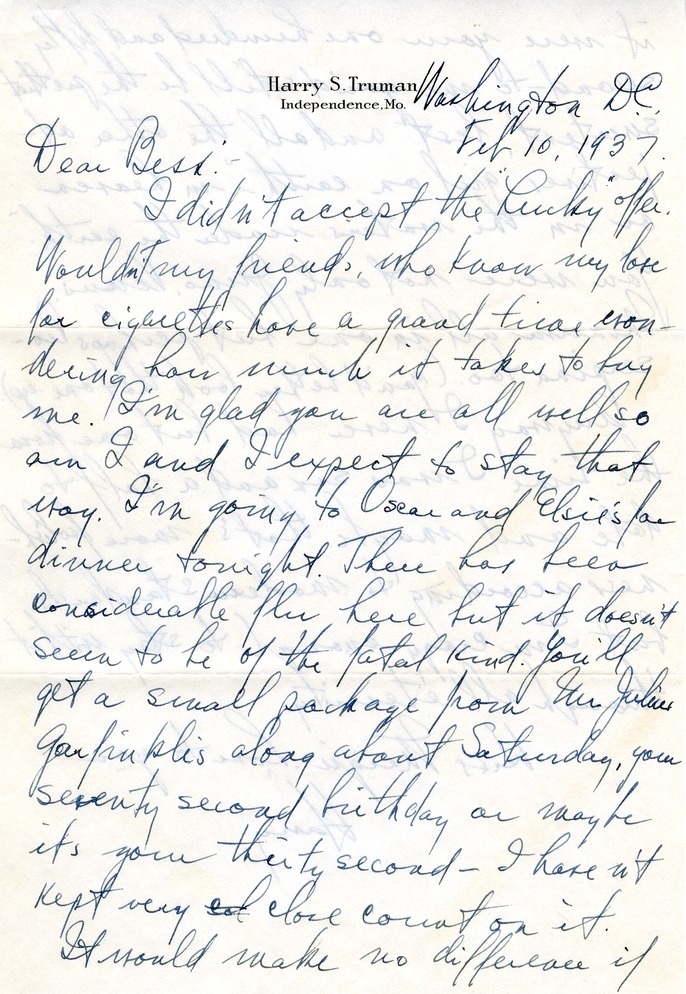 Harry S. Truman
Independence, Mo.
Washington D.C.
Feb 10, 1937.
Dear Bess:-
I didn't accept the "Lucky" offer.
Wouldn't my friends, who know my love
for cigarettes have a grand time won-
dering how much it takes to buy
me. I'm glad you are all well so
am I and I expect to stay that
way. I'm going to Oscar and Elsie's for
dinner tonight. There has been
considerable flu here but it doesn't
seem to be of the fatal kind. You'll
get a small package from Mr. Julius
Garfinklis along about Saturday, your
seventy second birthday or maybe
it's your thirty second - I haven't
kept very close count on it.
It would make no difference if